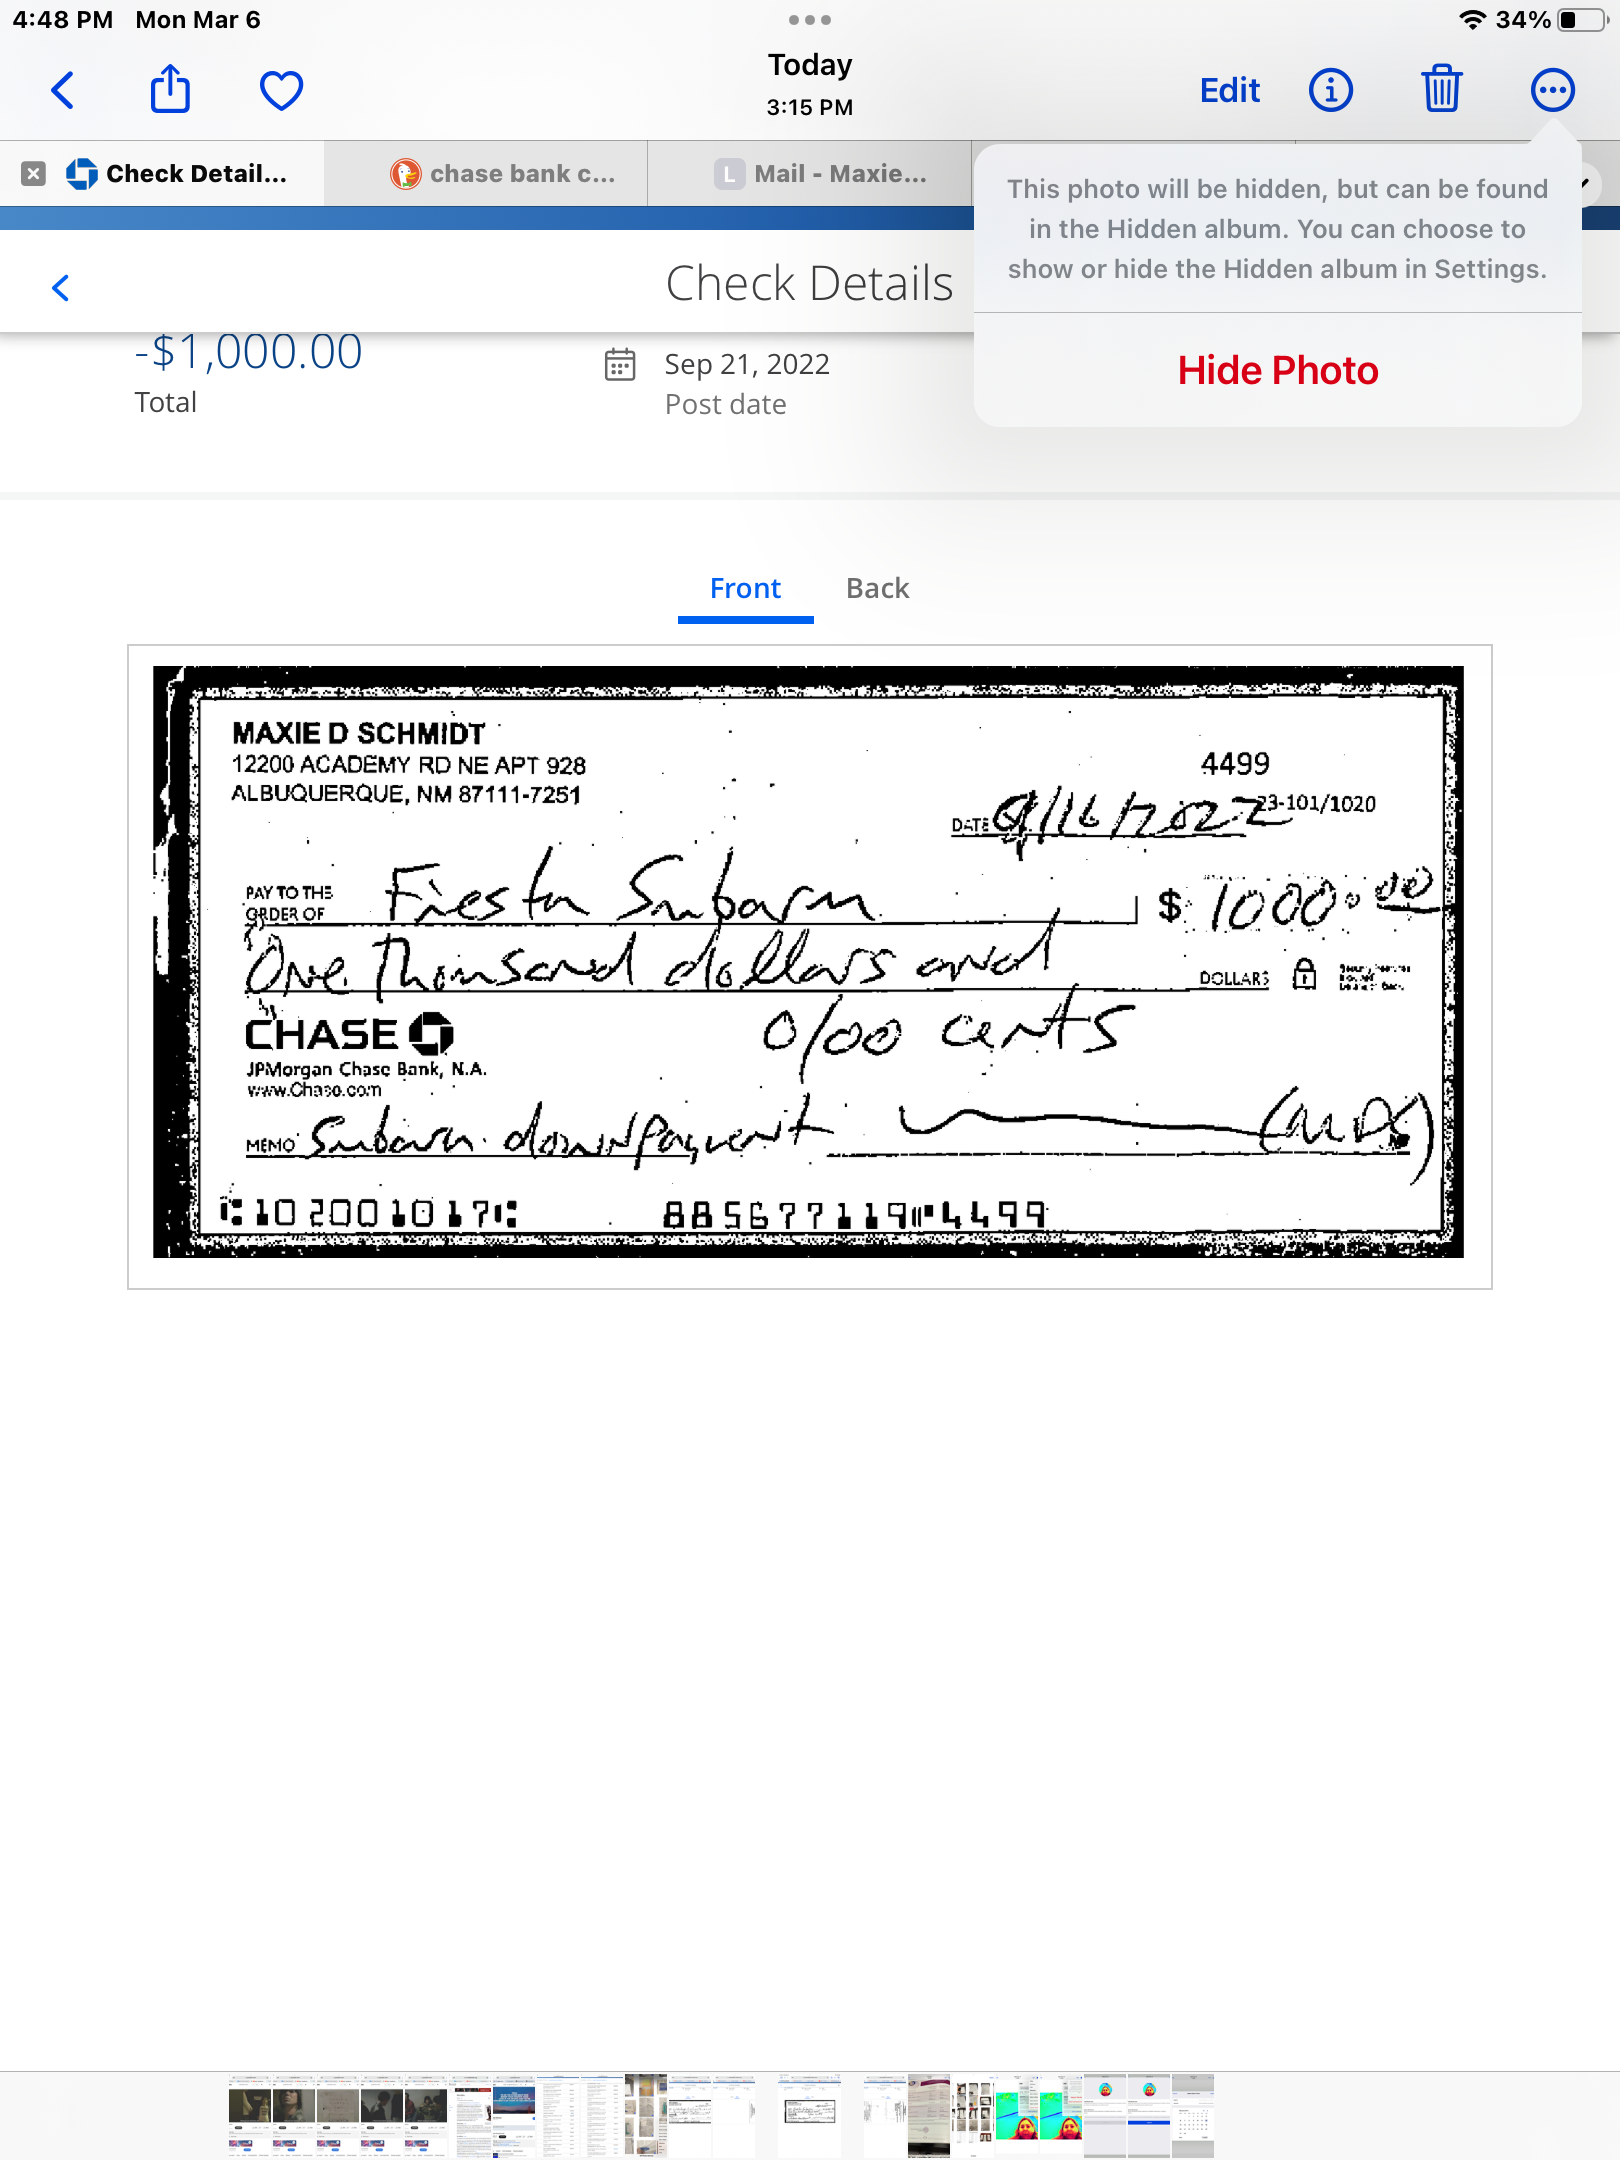 4:48 PM Mon Mar 6
34%
Today
3:15 PM
Edit
Check Detail...
chase bank c...
L Mail - Maxie...
This photo will be hidden, but can be found
in the Hidden album. You can choose to
show or hide the Hidden album in Settings.
Hide Photo
Check Details
-$1,000.00
Total
Sep 21, 2022
Post date
Front Back
MAXIE D SCHMIDT
12200 ACADEMY RD NE APT 928
ALBUQUERQUE, NM 87111-7251
4499
23-101/1020
DATE 9/16/2022
PAY TO THE
ORDER OF Fiesta Subaru $ 1000.00
One Thousand dollars and DOLLARS
0/00 cents
CHASE
JPMorgan Chase Bank, N.A.
www.Chase.com
MEMO Subaru downpayment (MDS)
⑆102001017⑆ 885677119⑈4499